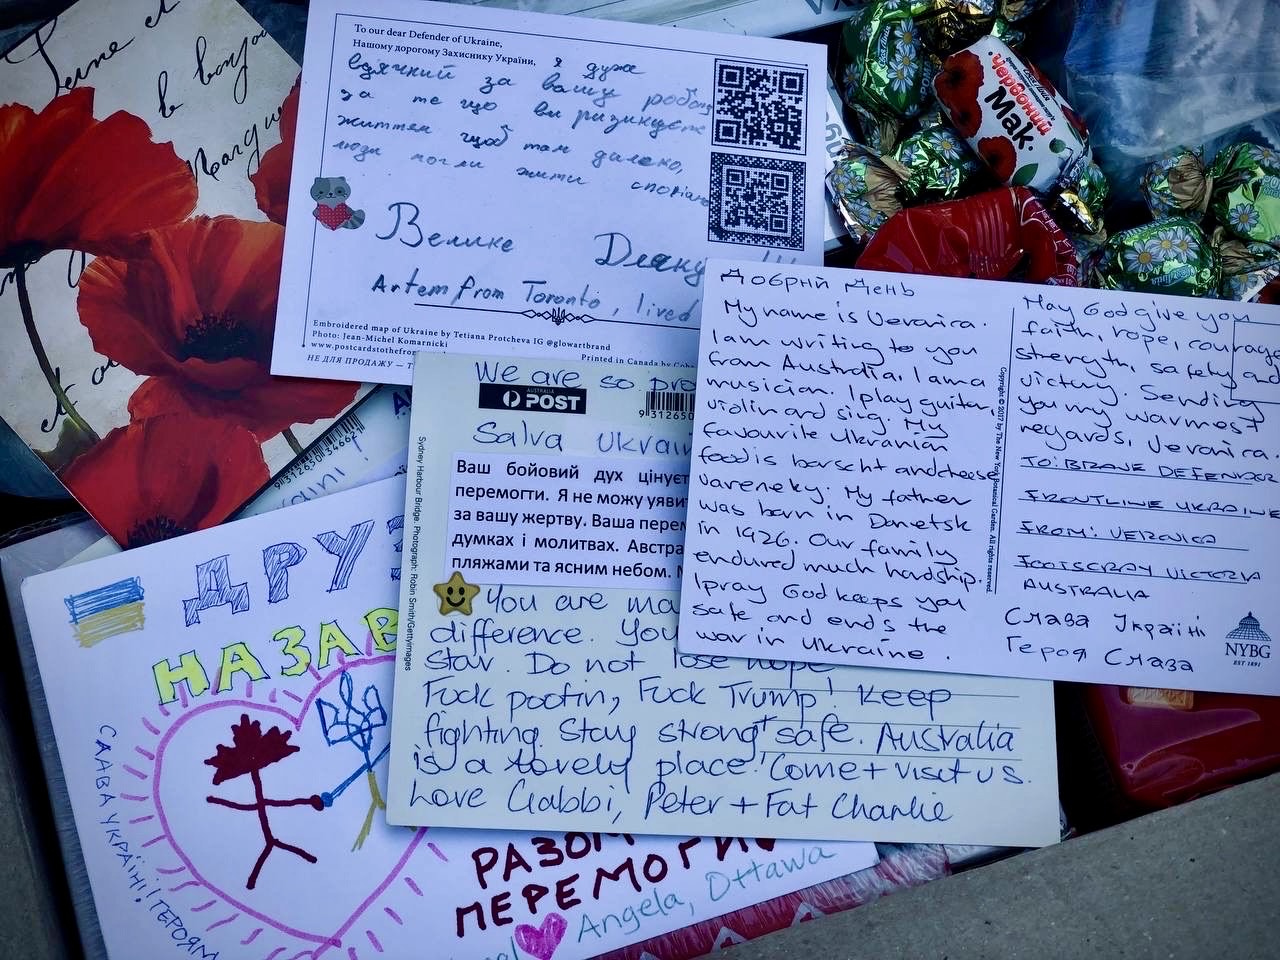 To our dear Defender of Ukraine,
Нашому дорогому Захиснику України, я дуже
вдячний за вашу роботу
за те що ви ризикуєте
життям щоб там далеко,
люди могли жити спокійно
Велике Дяку
Artem from Toronto, lived
Embroidered map of Ukraine by Tetiana Protcheva IG @glowartbrand
Photo: Jean-Michel Komarnicki
www.postcardstothefron
Printed in Canada by
НЕ ДЛЯ ПРОДАЖУ —
Червоний
Мак
Добрий День
My name is Veronica.
I am writing to you
from Australia. I am a
musician. I play guitar,
violin and sing. My
favourite Ukranian
food is borscht and cheese
vareneky. My father
was born in Donetsk
in 1926. Our family
endured much hardship.
I pray God keeps you
safe and ends the
war in Ukraine.
Copyright © 2017 by The New York Botanical Garden. All rights reserved.
May God give you
faith, hope, courage
strength, safety and
victory. Sending
you my warmest
regards, Veronica.
TO: BRAVE DEFENDOR
FRONTLINE UKRAINE
FROM: VERONICA
FOOTSCRAY VICTORIA
AUSTRALIA
Слава Україні
Героя Слава
NYBG
EST 1891
We are so pro
AUSTRALIA
POST
9 312650
Salva Ukrain
Ваш бойовий дух цінує
перемогти. Я не можу уяви
за вашу жертву. Ваша перем
думках і молитвах. Австра
пляжами та ясним небом.
You are ma
difference. You
star. Do not lose hope
Fuck pootin, Fuck Trump! Keep
fighting. Stay strong + safe. Australia
is a lovely place! Come + visit us.
Love Gabbi, Peter + Fat Charlie
Sydney Harbour Bridge. Photograph: Robin Smith/Gettyimages
9312650346621
ДРУЗ
НАЗАВ
СЛАВА УКРАЇНІ! ГЕРОЯМ
РАЗОМ
ПЕРЕМОГИ
Angela, Ottawa